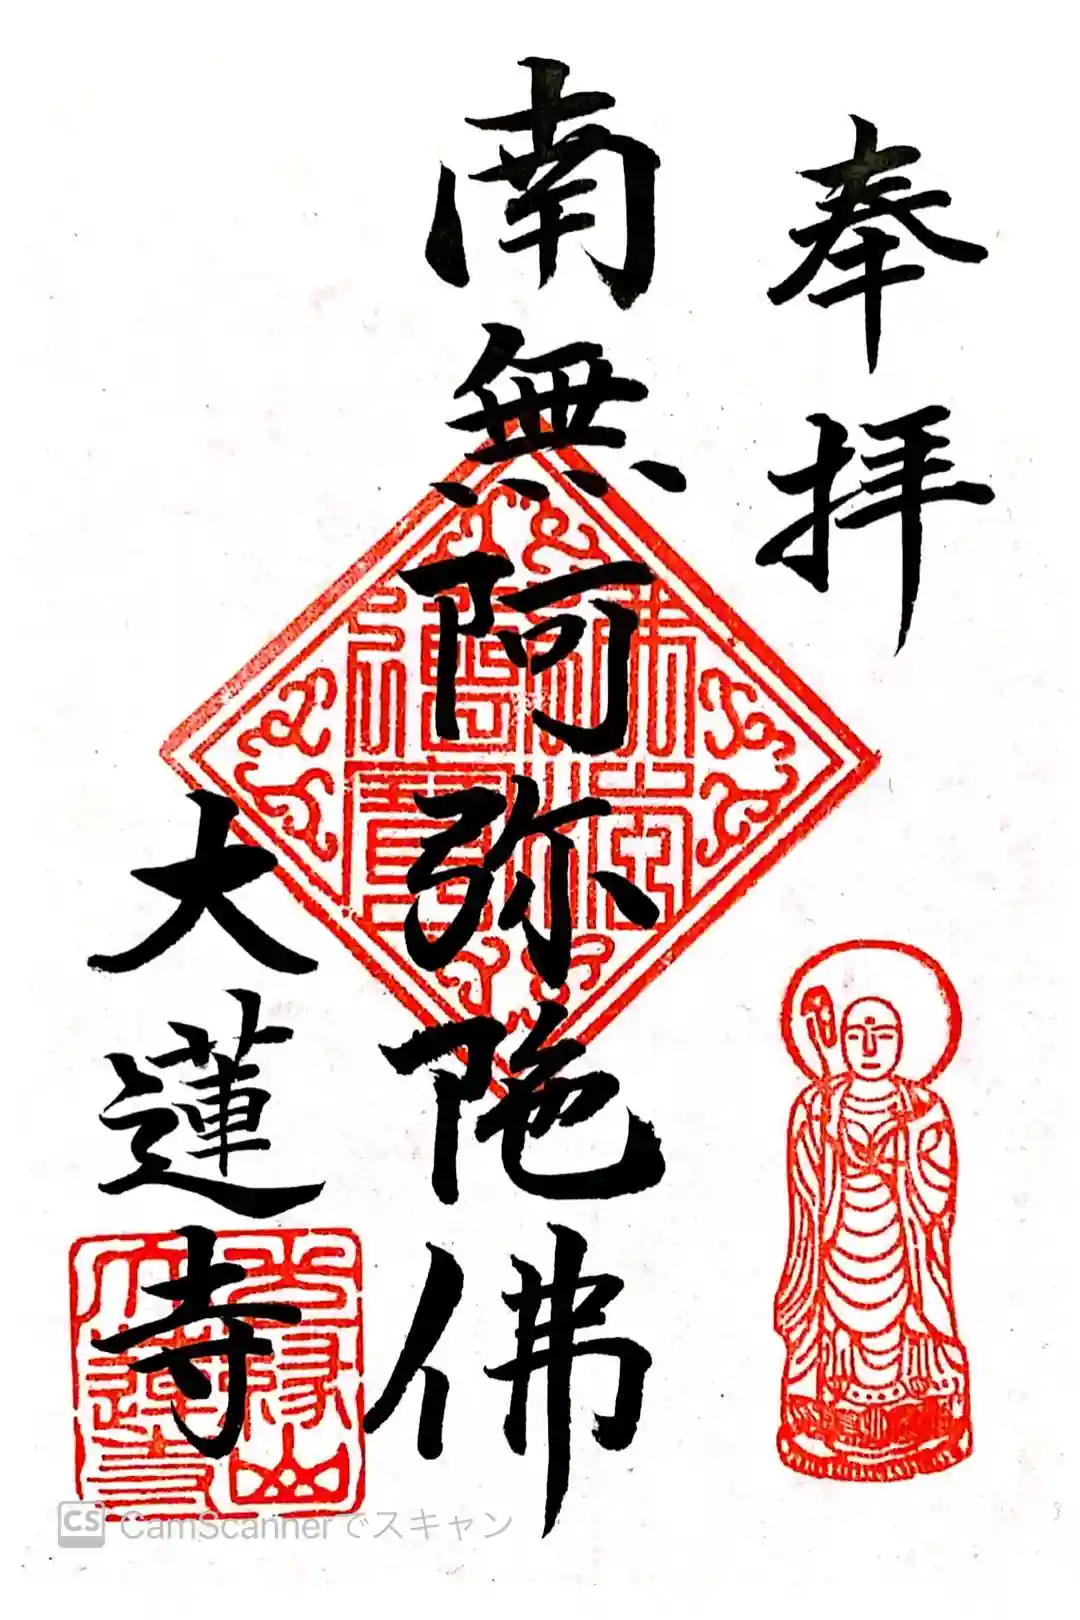 奉拝
南無阿弥陀佛
大蓮寺
CS CamScannerでスキャン